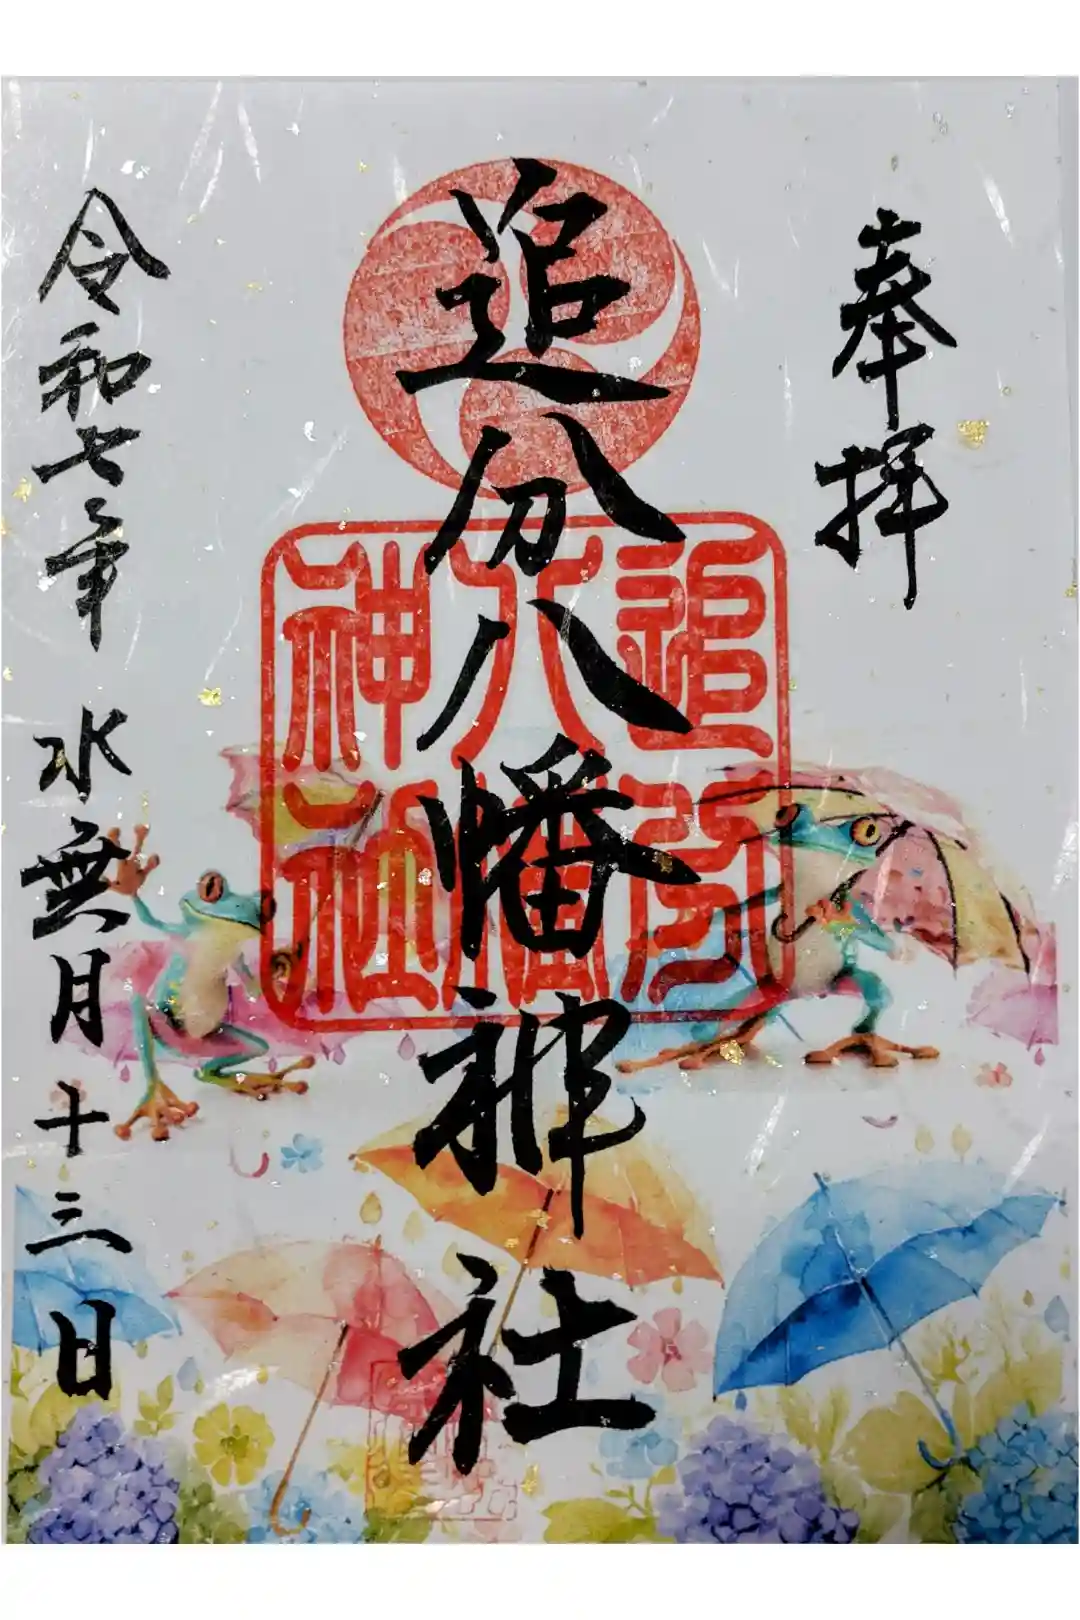 奉拝
追分八幡神社
追分
八幡
神社
令和七年 水無月 十三日